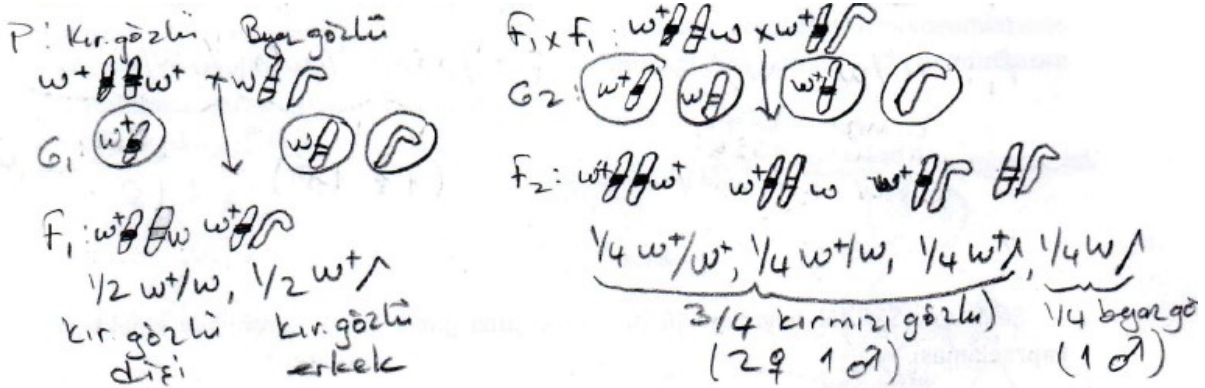 P: Kır.gözlü Beyaz gözlü
w⁺ w⁺ x w
G₁ w⁺ w
F₁: w⁺ w w⁺
1/2 w⁺/w, 1/2 w⁺
kır.gözlü kır.gözlü
dişi erkek
F₁ x F₁: w⁺ w x w⁺
G₂: w⁺ w w⁺
F₂: w⁺ w⁺ w⁺ w w⁺
1/4 w⁺/w⁺, 1/4 w⁺/w, 1/4 w⁺, 1/4 w
3/4 kırmızı gözlü) 1/4 beyaz gö
(2♀ 1♂) (1♂)